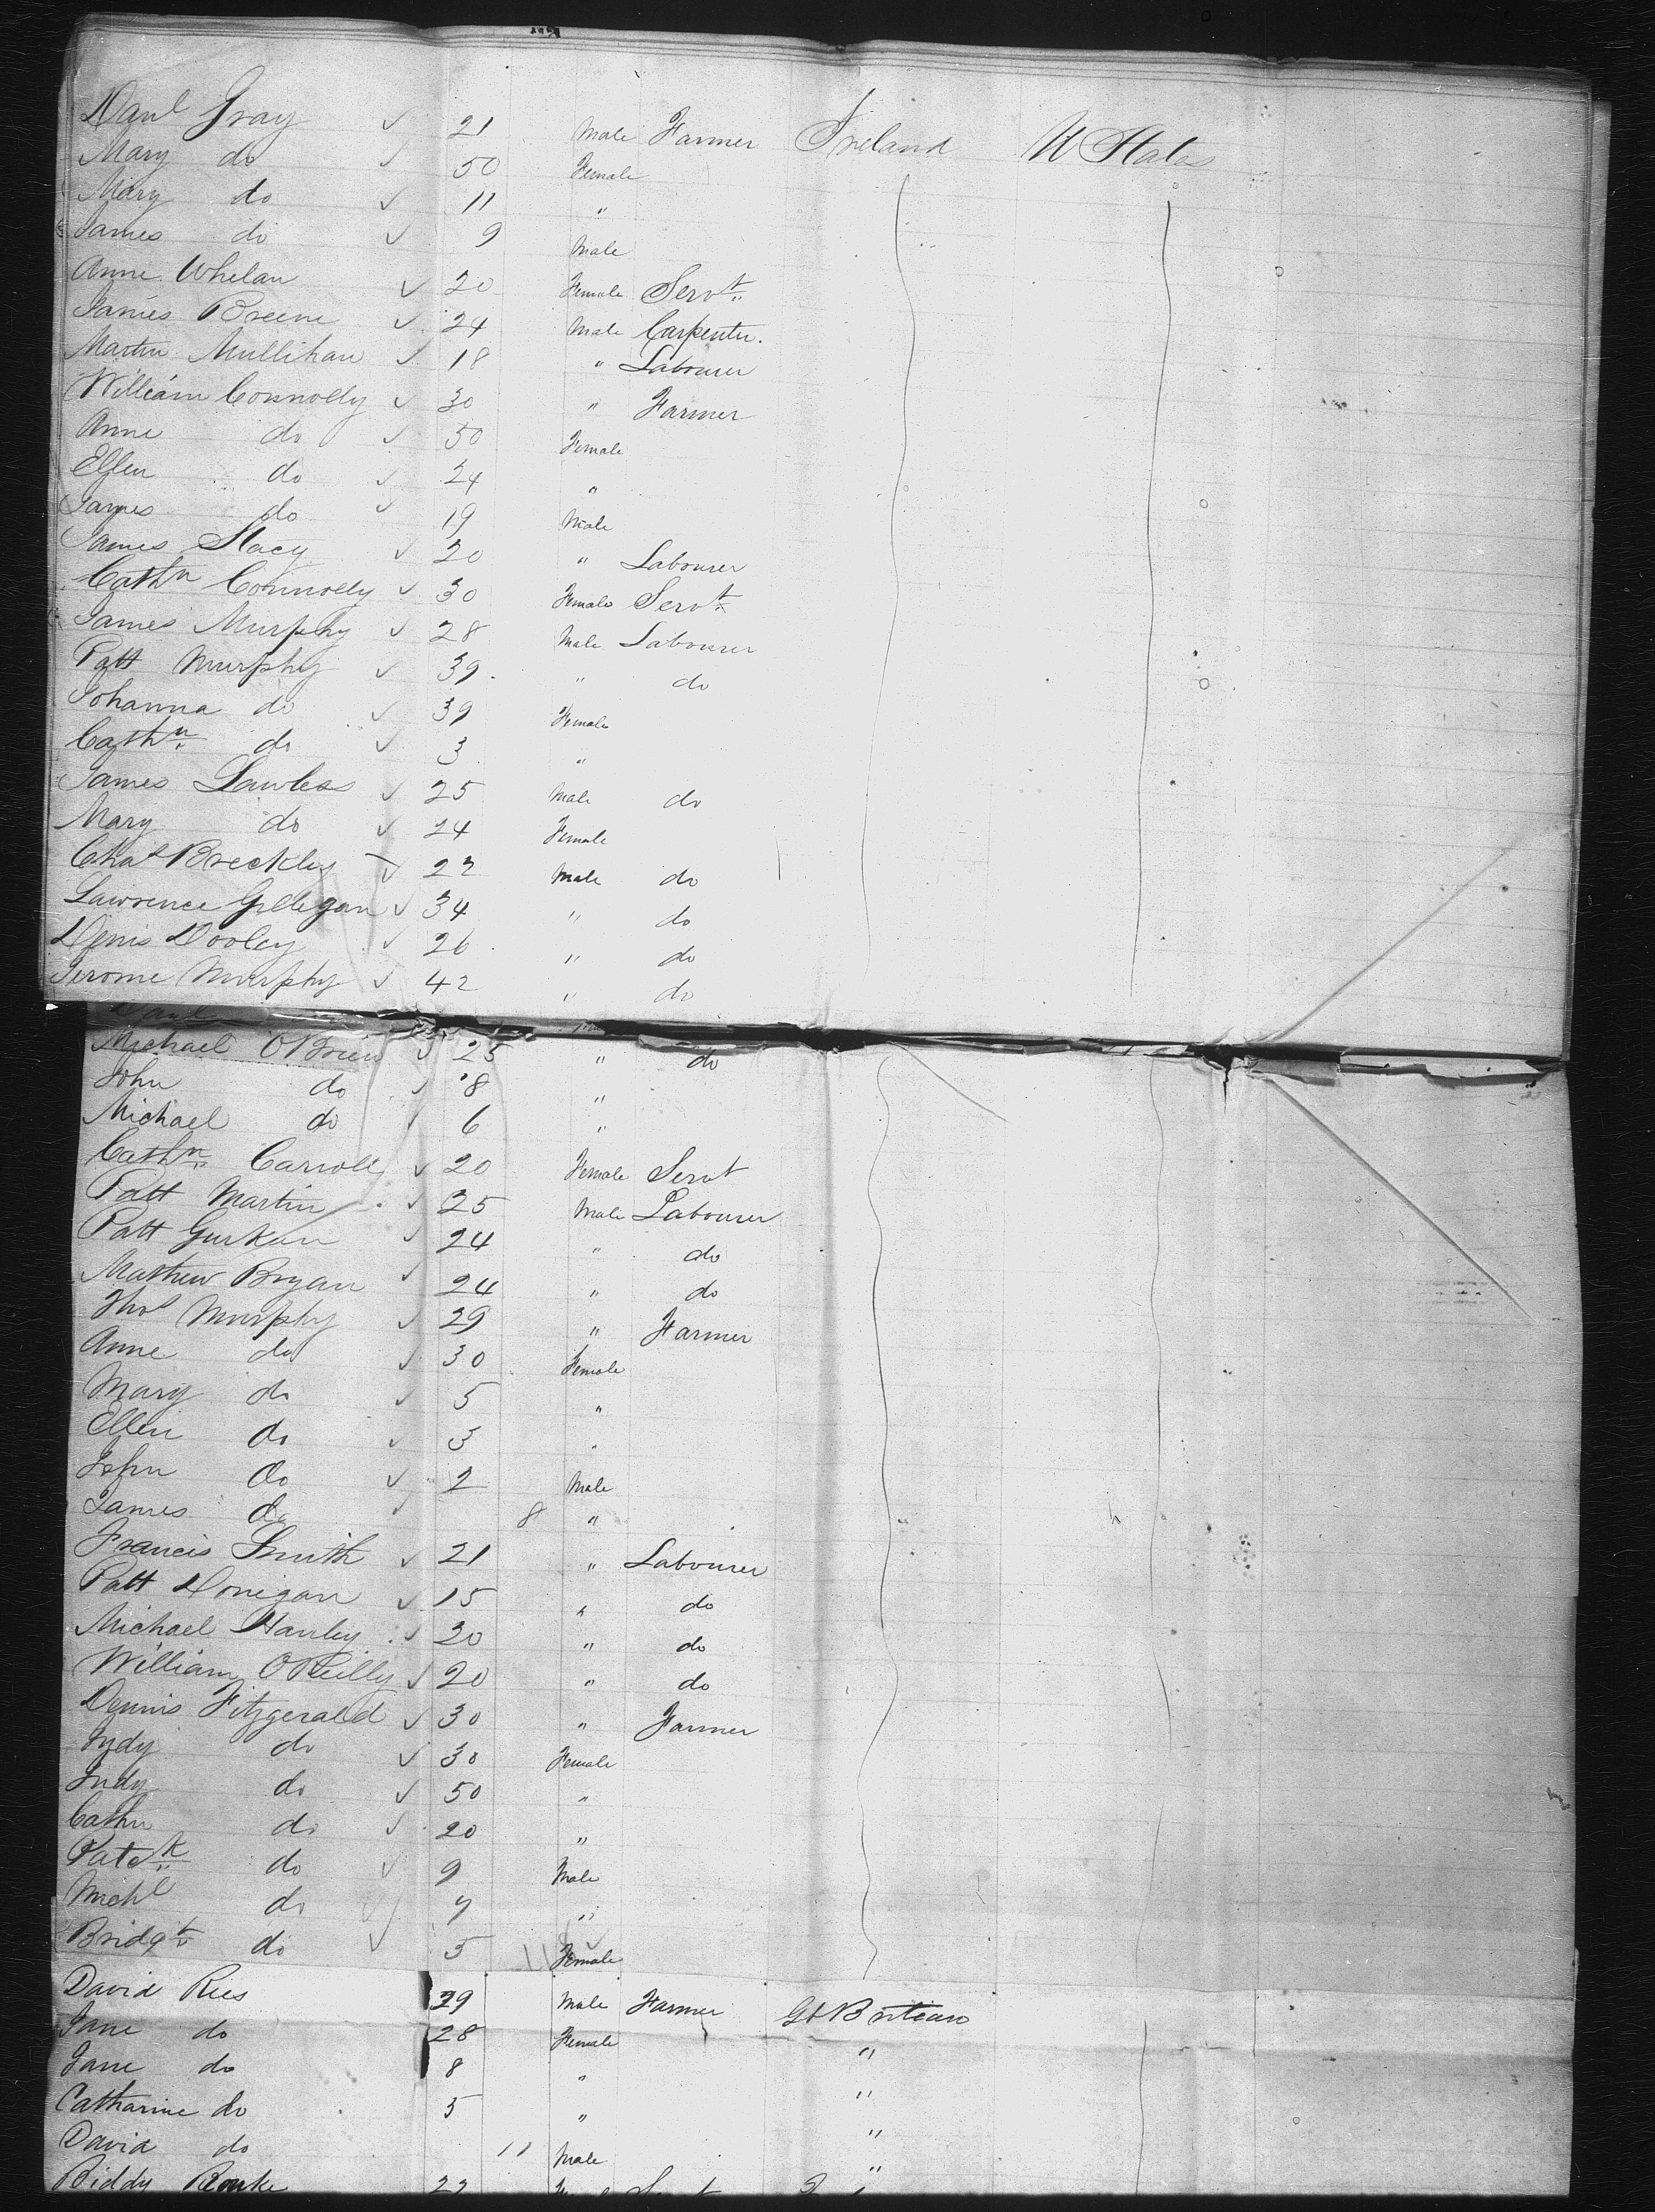 Danl Gray 21 Male Farmer Ireland U States
Mary do 50 Female
Mary do 11 "
James do 9 Male
Anne Whelan 20 Female Servt
James Breene 24 Male Carpenter.
Martin Mullihan 18 " Labourer
William Connolly 30 " Farmer
Anne do 50 Female
Ellen do 24 "
James do 19 Male
James Stacy 20 " Labourer
Cathn Connolly 30 Female Servt
James Murphy 28 Male Labourer
Patt Murphy 39 " do
Johanna do 39 Female
Cathn do 3 "
James Lawless 25 Male do
Mary do 24 Female
Chas Breckley 22 Male do
Lawrence Gillegan 34 " do
Denis Dooley 26 " do
Jerome Murphy 42 " do
Danl
Michael OBrien 25 " do
John do 8 "
Michael do 6 "
Cathn Carroll 20 Female Servt
Patt Martin 25 Male Labourer
Patt Gurkan 24 " do
Mathew Bryan 24 " do
Thos Murphy 29 " Farmer
Anne do 30 Female
Mary do 5 "
Ellen do 3 "
John do 2 Male
James do 8 "
Francis Smith 21 " Labourer
Patt Donigan 15 " do
Michael Hanley 20 " do
William OReilly 20 " do
Dennis Fitzgerald 30 " Farmer
Judy do 30 Female
Judy do 50 "
Cathn do 20 "
Patck do 9 Male
Michl do 7 "
Bridgt do 5 Female
David Rees 29 Male Farmer Gt Britian
Jane do 28 Female "
Jane do 8 " "
Catharine do 5 " "
David do 11 Male "
Biddy Rourke 22